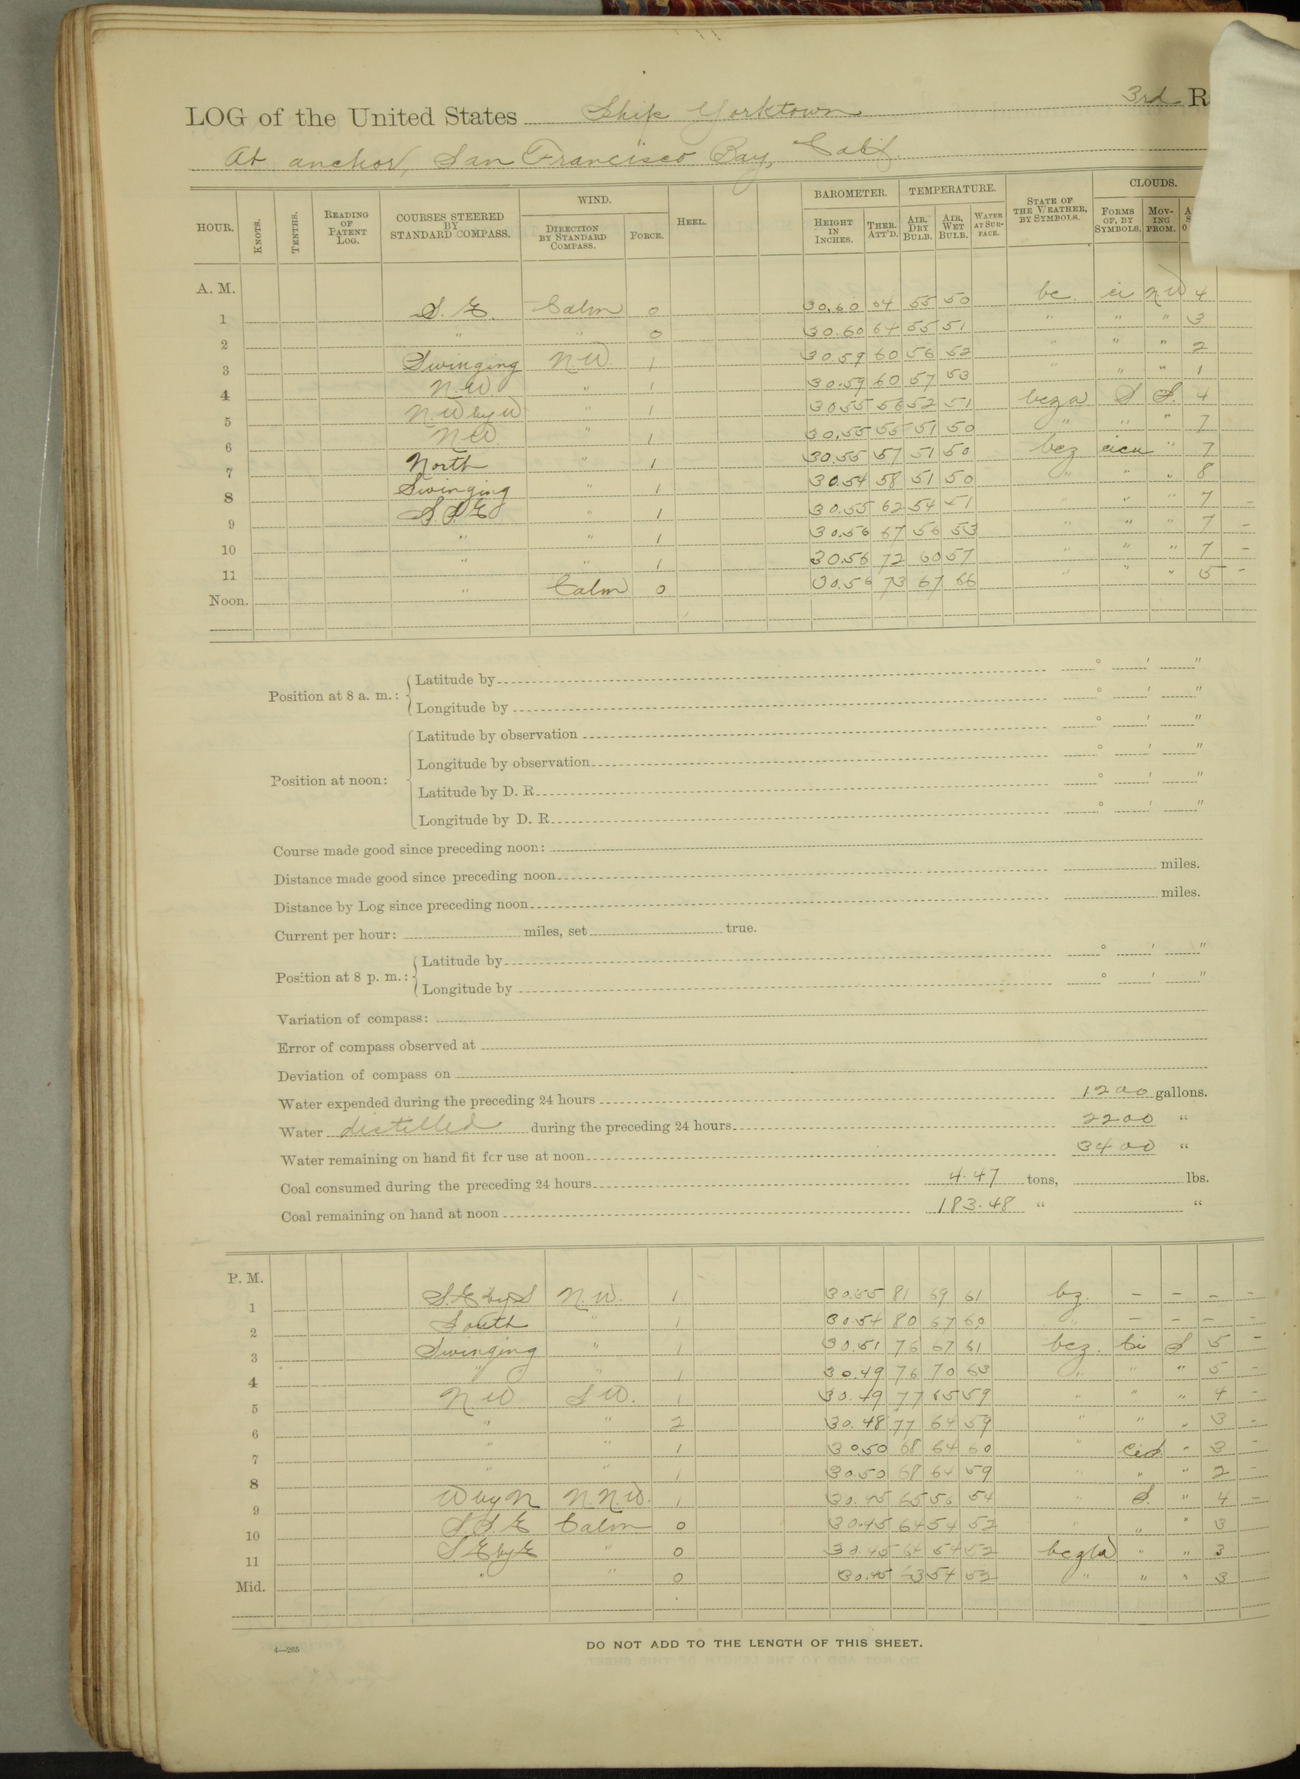 LOG of the United States Ship Yorktown 3rd R
At anchor, San Francisco Bay, Calif.
HOUR. KNOTS. TENTHS. READING OF PATENT LOG. COURSES STEERED BY STANDARD COMPASS. WIND. DIRECTION BY STANDARD COMPASS. FORCE. HEEL. BAROMETER. HEIGHT IN INCHES. THER. ATT'D. TEMPERATURE. AIR, DRY BULB. AIR, WET BULB. WATER AT SURFACE. STATE OF THE WEATHER, BY SYMBOLS. CLOUDS. FORMS OF, BY SYMBOLS. MOVING FROM.
A. M.
1 S. E. Calm 0 30.60 64 55 50 bc. ci NW 4
2 " " 0 30.60 64 55 51 " " " 3
3 Swinging NW 1 30.59 60 56 52 " " " 2
4 N.W. " 1 30.59 60 57 53 " " 1
5 NW by W " 1 30.55 56 52 51 bcza S S. 4
6 NW " 1 30.55 55 51 50 " " " 7
7 North " 1 30.55 57 51 50 bcz cicu " 7
8 Swinging " 1 30.54 58 51 50 " " " 8
9 " 1 30.55 62 54 51 " " " 7 -
10 " " 1 30.56 67 56 53 " " " 7 -
11 " " 1 30.56 72 60 57 " " " 7 -
Noon. " Calm 0 30.56 73 67 66 " " " 5 -
Position at 8 a. m.: Latitude by ° ' "
Longitude by ° ' "
Position at noon: Latitude by observation ° ' "
Longitude by observation ° ' "
Latitude by D. R. ° ' "
Longitude by D. R. ° ' "
Course made good since preceding noon:
Distance made good since preceding noon miles.
Distance by Log since preceding noon miles.
Current per hour: miles, set true.
Position at 8 p. m.: Latitude by ° ' "
Longitude by ° ' "
Variation of compass:
Error of compass observed at
Deviation of compass on
Water expended during the preceding 24 hours 1200 gallons.
Water distilled during the preceding 24 hours 2200 "
Water remaining on hand fit for use at noon 3400 "
Coal consumed during the preceding 24 hours 4.47 tons, lbs.
Coal remaining on hand at noon 183.48 " "
P. M.
1 S.E by S N.W. 1 30.55 81 69 61 bz. - - - -
2 South " 1 30.54 80 67 60 " - - - -
3 Swinging " 1 30.51 76 67 61 bcz. Ci S 5 -
4 " " 1 30.49 76 70 63 " " " 5 -
5 NW SW. 1 30.49 77 65 59 " " " 4 -
6 " " 2 30.48 77 64 59 " " " 3 -
7 " " 1 30.50 68 64 60 " Cis " 3 -
8 " " 1 30.50 68 64 59 " " 2 -
9 W by N N.N.W. 1 30.45 65 56 54 S. " 4 -
10 S.S.E Calm 0 30.45 64 54 52 " " " 3
11 SE by E " 0 30.45 64 54 52 " " 3
Mid. " " 0 30.45 54 52 " " " 3
4—265
DO NOT ADD TO THE LENGTH OF THIS SHEET.